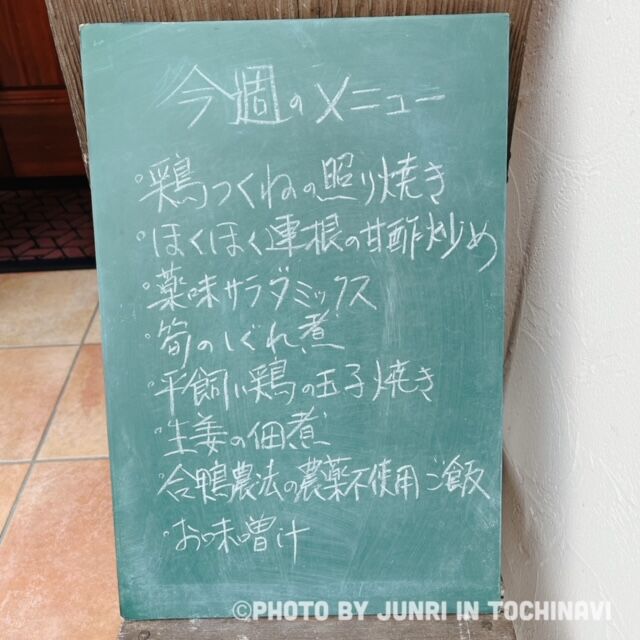 今週のメニュー
・鶏つくねの照り焼き
・ほくほく連根の甘酢炒め
・薬味サラダミックス
・筍のしぐれ煮
・平飼い鶏の玉子焼き
・生姜の佃煮
・合鴨農法の農薬不使用ご飯
・お味噌汁
©PHOTO BY JUNRI IN TOCHINAVI